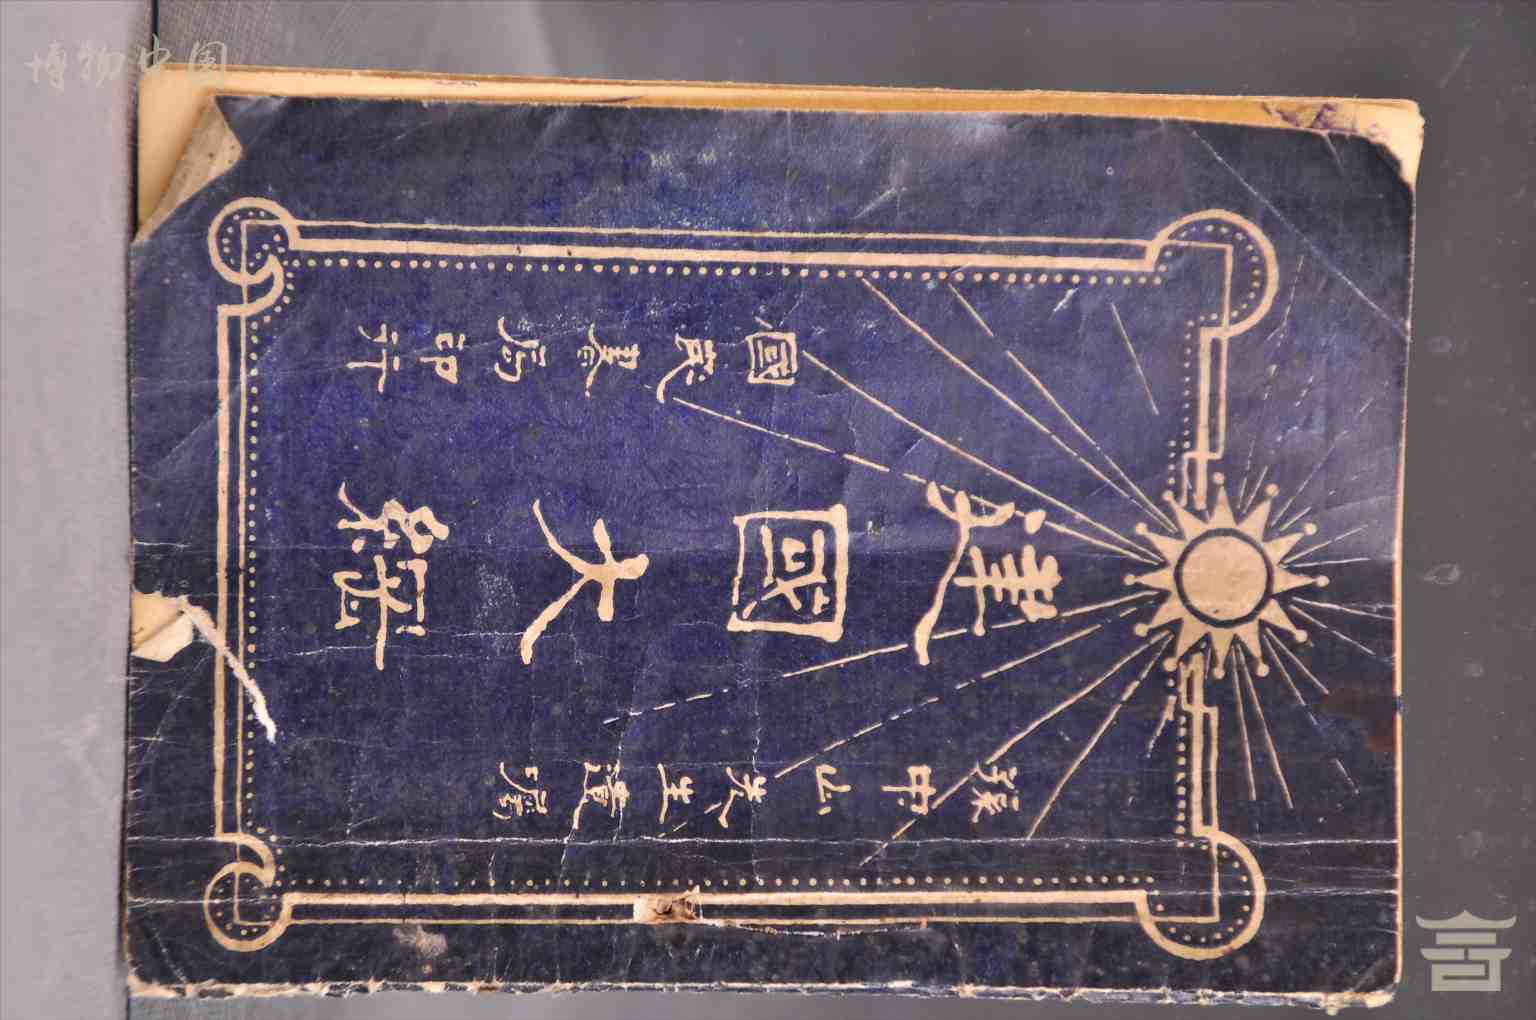 博物中国
孫中山先生遺囑
建國大綱
國書局印行